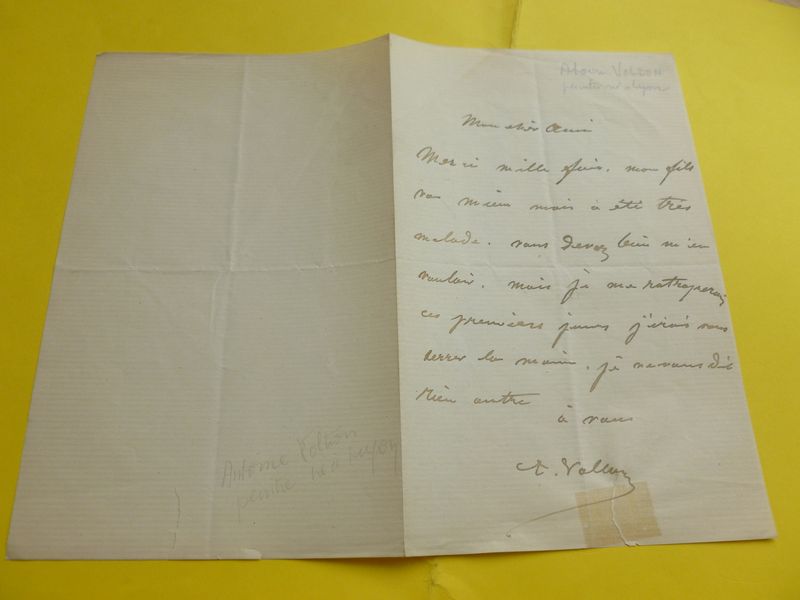 Antoine VOLLON
peintre né a Lyon
Mon cher Ami
Merci mille fois. mon fils
va mieux mais à été très
malade. vous devez bien m'en
vouloir. mais je me rattraperai
ces premiers jours j'irais vous
serrer la main. je ne vous dis
rien autre
à vous
A. Vollon
Antoine Vollon
peintre né à Lyon